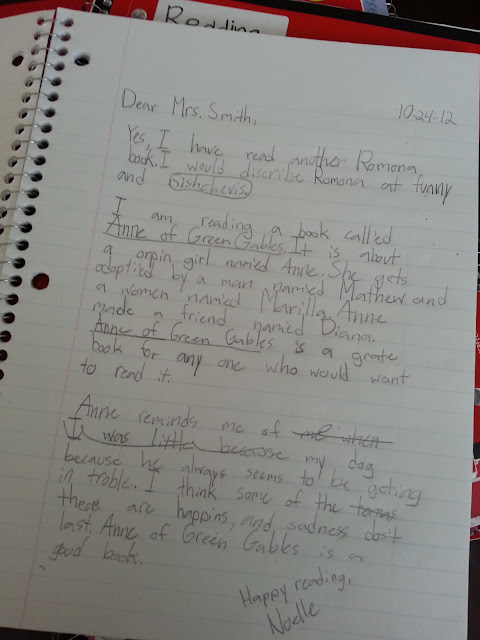 Reading
Dear Mrs. Smith,
10-24-12
Yes, I have read another Romona
book. I would discribe Romona at funny
and Gishchevis.
I am reading a book called
Anne of Green Gables. It is about
a orpin girl named Anne. She gets
adoptied by a man named Mathew and
a women named Marilla. Anne
made a friend named Diana.
Anne of Green Gables is a grate
book for any one who would want
to read it.
Anne reminds me of me when
I was little becrose my dog
because he always seems to be geting
in troble. I think some of the
thegs are happins, and sadness dost
last. Anne of Green Gables is a
good book.
Happy reading,
Noelle